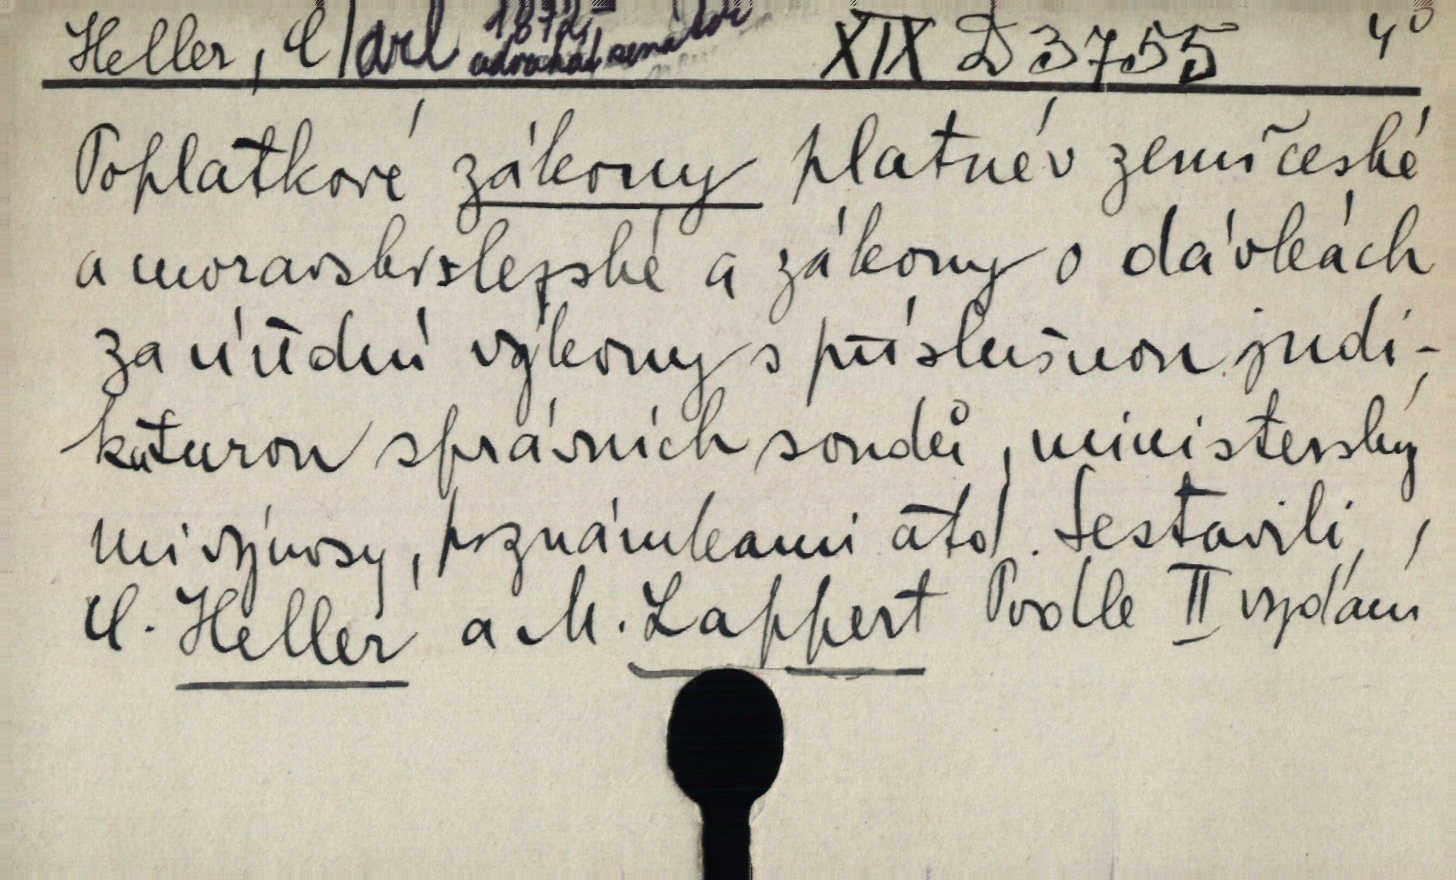 Heller, C/arl 1872- advokát senátor XIX D 3755 4°
Poplatkové zákony platné v zemi české
a moravskoslezské a zákony o dávkách
za úřední výkony s příslušnou judi-
katurou správních soudů, ministerský
mi výnosy, poznámkami atd. Sestavili
C. Heller a M. Lappert Podle II vydání